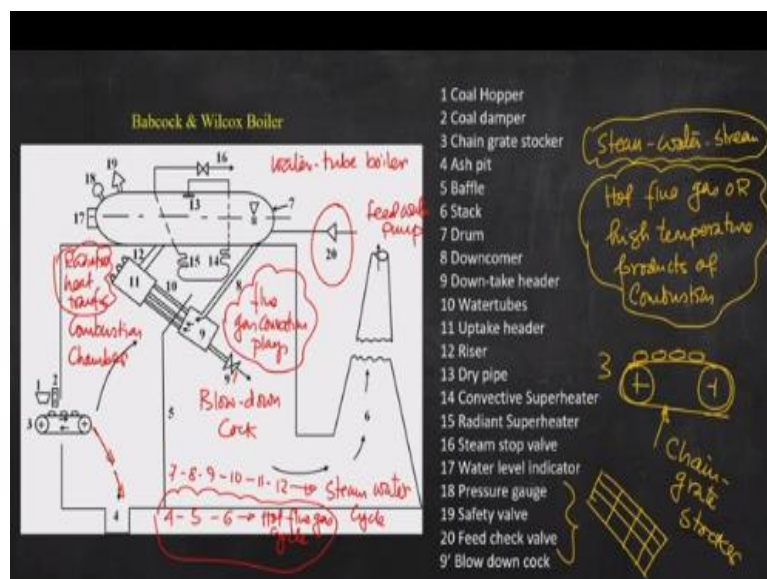 Babcock & Wilcox Boiler
19
16
water-tube boiler
18
13
17
8
7
Feed water
pump
20
Radiative
heat
transfer
12
15
14
11
10
8
Combustion
Chamber
9
flue
gas convection
plays
9'
Blow-down
Cock
1
2
3
5
6
4
7-8-9-10-11-12 → Steam water
Cycle
4-5-6 → Hot flue gas
Cycle
1 Coal Hopper
2 Coal damper
3 Chain grate stocker
4 Ash pit
5 Baffle
6 Stack
7 Drum
8 Downcomer
9 Down-take header
10 Watertubes
11 Uptake header
12 Riser
13 Dry pipe
14 Convective Superheater
15 Radiant Superheater
16 Steam stop valve
17 Water level indicator
18 Pressure gauge
19 Safety valve
20 Feed check valve
9' Blow down cock
Steam-water-stream
Hot flue gas OR
high temperature
products of
Combustion
3
Chain-
grate
Stocker